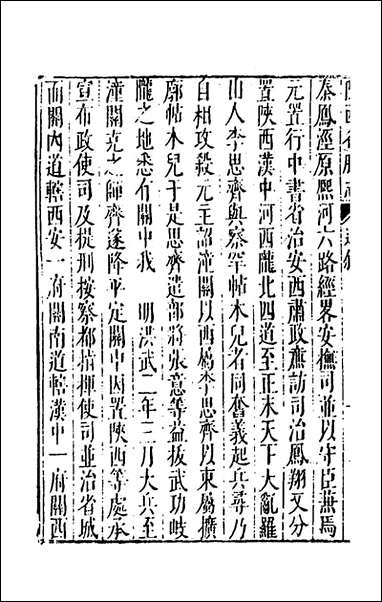 秦鳳涇原熙河六路經畧安撫司並以守臣兼焉
元置行中書省治安西肅政廉訪司治鳳翔又分
置陝西漢中河西隴北四道至正末天下大亂羅
山人李思齊與察罕帖木兒者同奮義起兵尋乃
自相攻殺元主詔潼關以西屬李思齊以東屬擴
廓帖木兒于是思齊遣部將張意等益拔武功岐
隴之地悉有關中我　明洪武二年三月大兵至
潼關克之師齊遂降平定關中因置陝西等處承
宣布政使司及提刑按察都指揮使司並治省城
而關內道轄西安一府關南道轄漢中一府關西